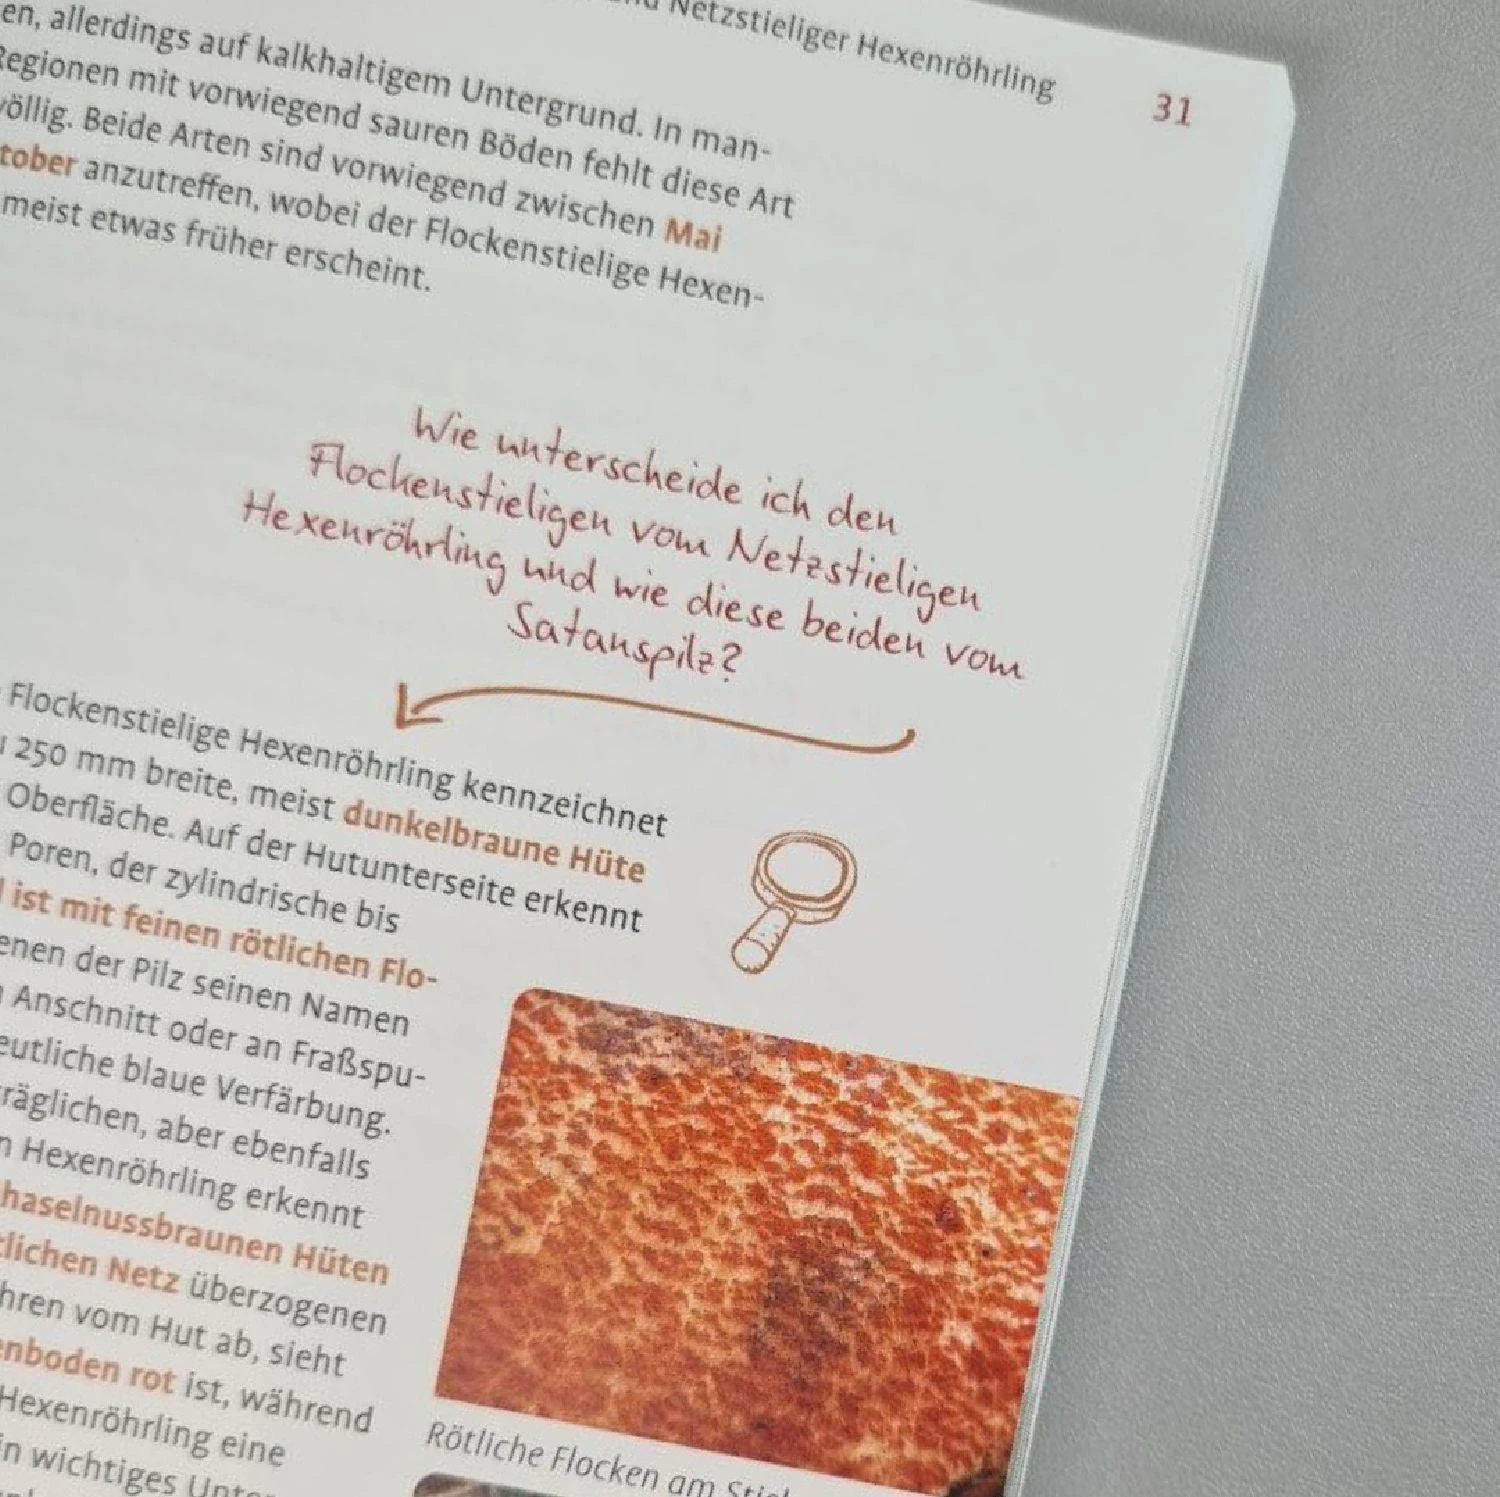 Netzstieliger Hexenröhrling
31
allerdings auf kalkhaltigem Untergrund. In man-
Regionen mit vorwiegend sauren Böden fehlt diese Art
völlig. Beide Arten sind vorwiegend zwischen Mai
tober anzutreffen, wobei der Flockenstielige Hexen-
meist etwas früher erscheint.
Wie unterscheide ich den
Flockenstieligen vom Netzstieligen
Hexenröhrling und wie diese beiden vom
Satanspilz?
Flockenstielige Hexenröhrling kennzeichnet
250 mm breite, meist dunkelbraune Hüte
Oberfläche. Auf der Hutunterseite erkennt
Poren, der zylindrische bis
ist mit feinen rötlichen Flo-
enen der Pilz seinen Namen
Anschnitt oder an Fraßspu-
eutliche blaue Verfärbung.
räglichen, aber ebenfalls
n Hexenröhrling erkennt
haselnussbraunen Hüten
tlichen Netz überzogenen
hren vom Hut ab, sieht
enboden rot ist, während
Hexenröhrling eine
in wichtiges Unte
Rötliche Flocken am Stiel